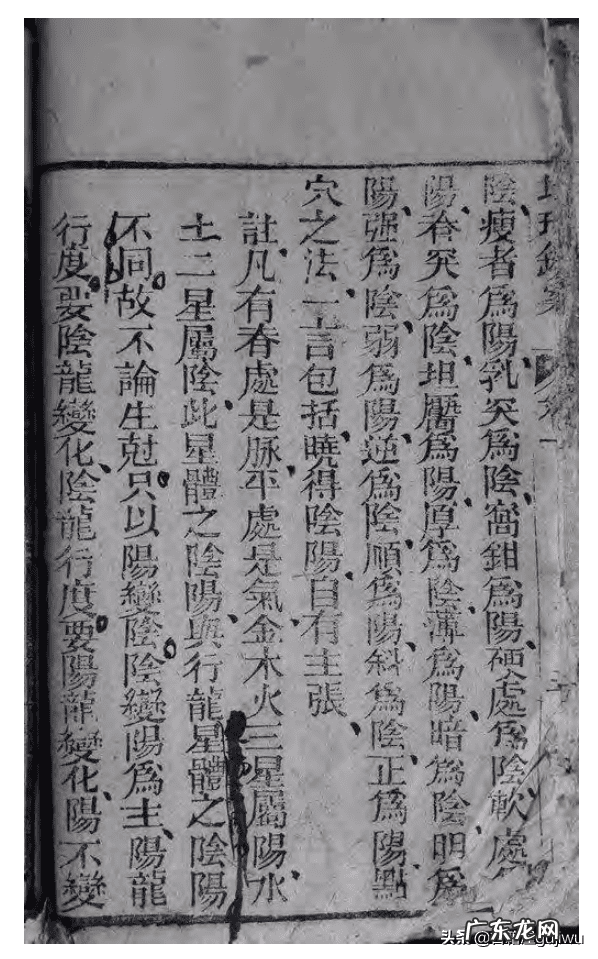 陰瘦者爲陽乳突爲陰窩鉗爲陽硬處爲陰軟處
陽脊突爲陰坦靨爲陽厚爲陰薄爲陽暗爲陰明爲
陽强爲陰弱爲陽逆爲陰順爲陽斜爲陰正爲陽點
穴之法一言包括曉得陰陽自有主張
註凡有脊處是脉平處是氣金木火三星屬陽水
土二星屬陰此星體之陰陽與行龍星體之陰陽
不同故不論生尅只以陽變陰陰變陽爲主陽龍
行度要陰龍變化陰龍行度要陽龍變化陽不變
广东龙网
头条
gujwu